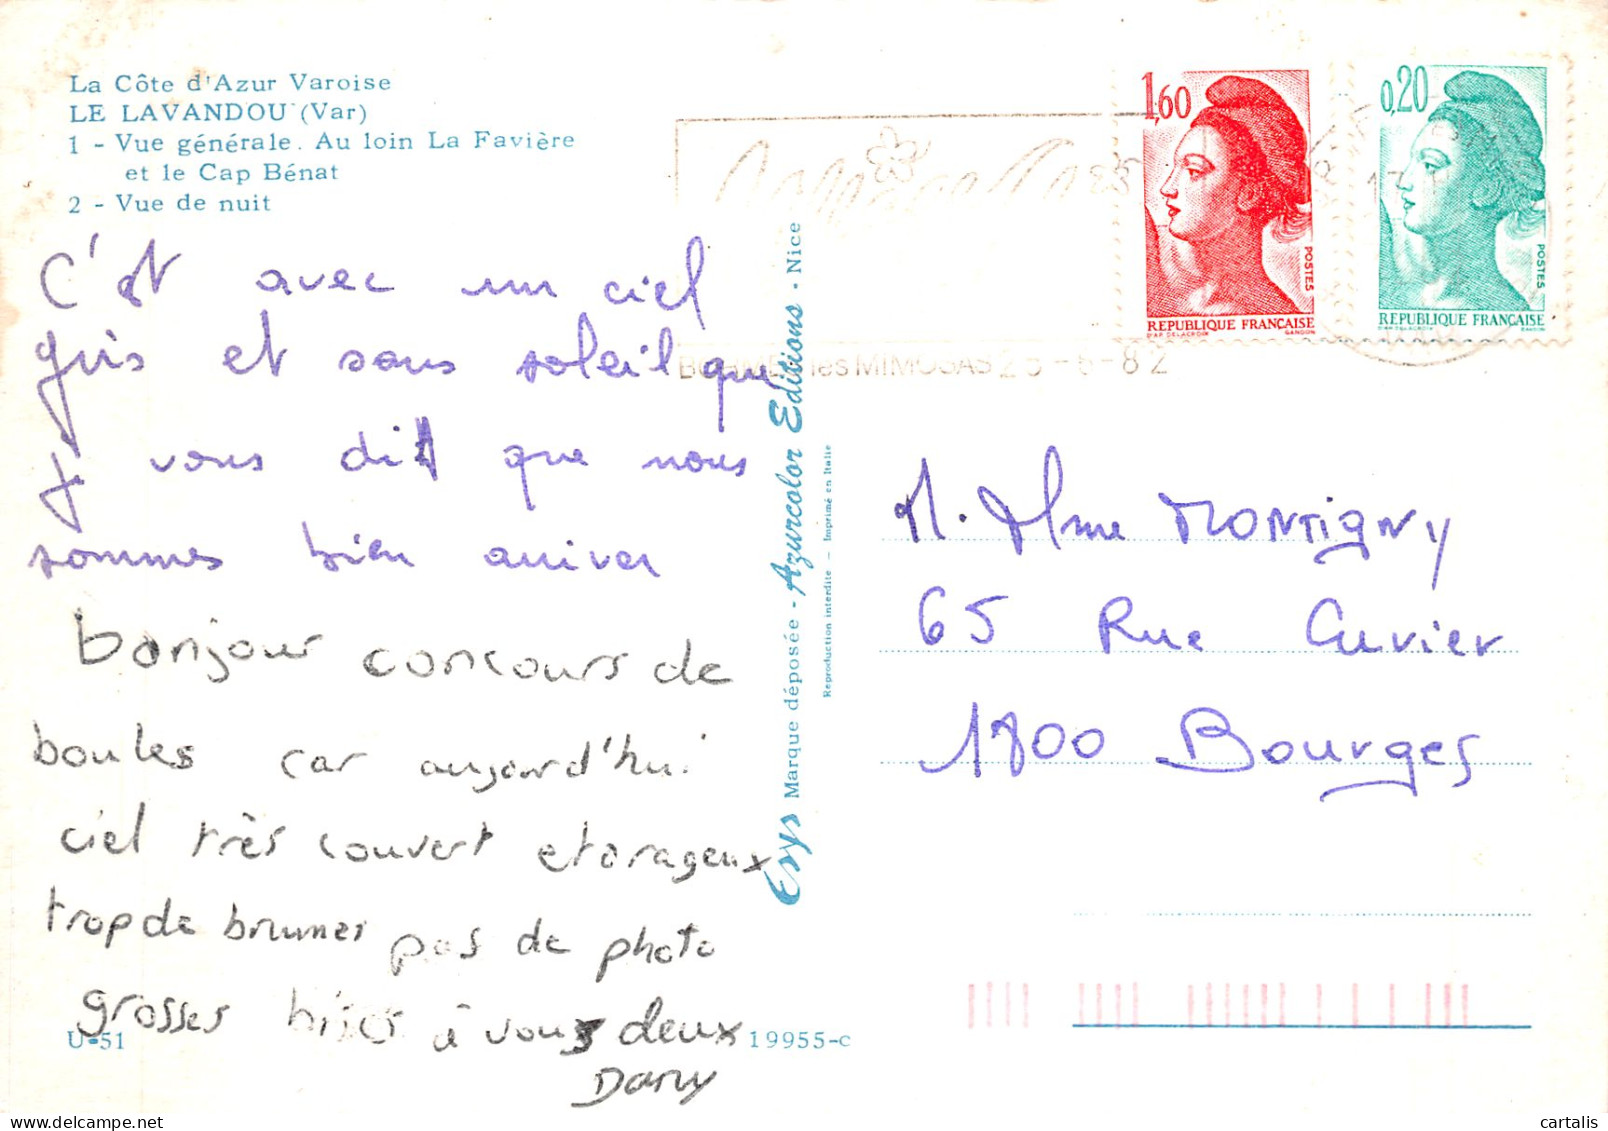 La Côte d'Azur Varoise
LE LAVANDOU (Var)
1 - Vue générale. Au loin La Favière
et le Cap Bénat
2 - Vue de nuit
C'est avec un ciel
gris et sans soleil que
je vous dit que nous
sommes bien arriver
bonjour concours de
boules car aujourd'hui
ciel très couvert et orageux
trop de brumes pas de photo
grosses bises à vous deux
Dany
U-51
19955-c
Esys Marque déposée - Azurcolor Editions - Nice
Reproduction interdite - Imprimé en Italie
les MIMOSAS 25-6-82
1,60
POSTES
REPUBLIQUE FRANÇAISE
D'AP. DELACROIX GANDON
0,20
POSTES
REPUBLIQUE FRANÇAISE
D'AP. DELACROIX GANDON
M. Mme MONTIGNY
65 Rue Cuvier
1800 Bourges
cartalis